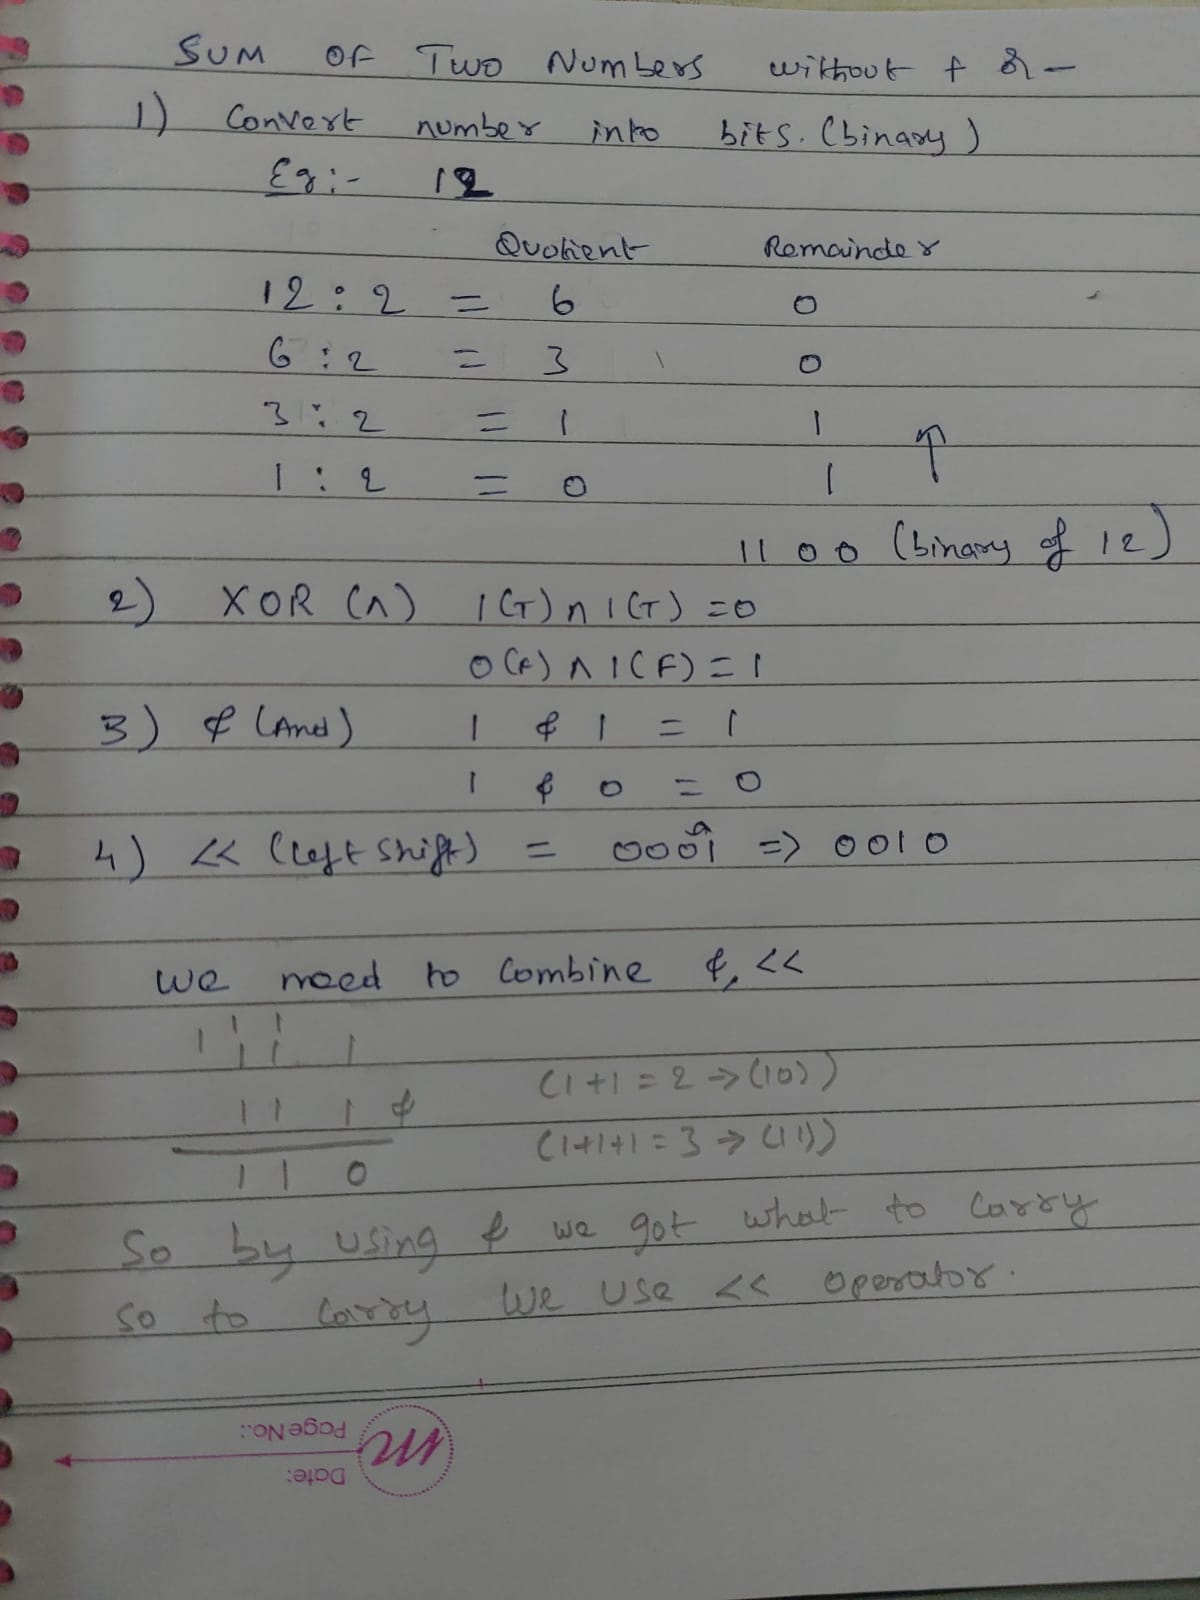 SUM OF Two Numbers without + & -
1) Convert number into bits. (binary)
Eg:- 12
Quotient Remainder
12 : 2 = 6 0
6 : 2 = 3 0
3 : 2 = 1 1
1 : 2 = 0 1
1100 (binary of 12)
2) XOR (^) 1(T) ^ 1(T) = 0
0(F) ^ 1(F) = 1
3) & (And) 1 & 1 = 1
1 & 0 = 0
4) << (left shift) = 0001 => 0010
We need to Combine &, <<
1 1
1 1 1 1
(1+1=2→(10))
1 1 1 &
(1+1+1=3→(11))
1 1 0
So by using & we got what to carry
so to carry we use << operator.
Page No.:
Date: